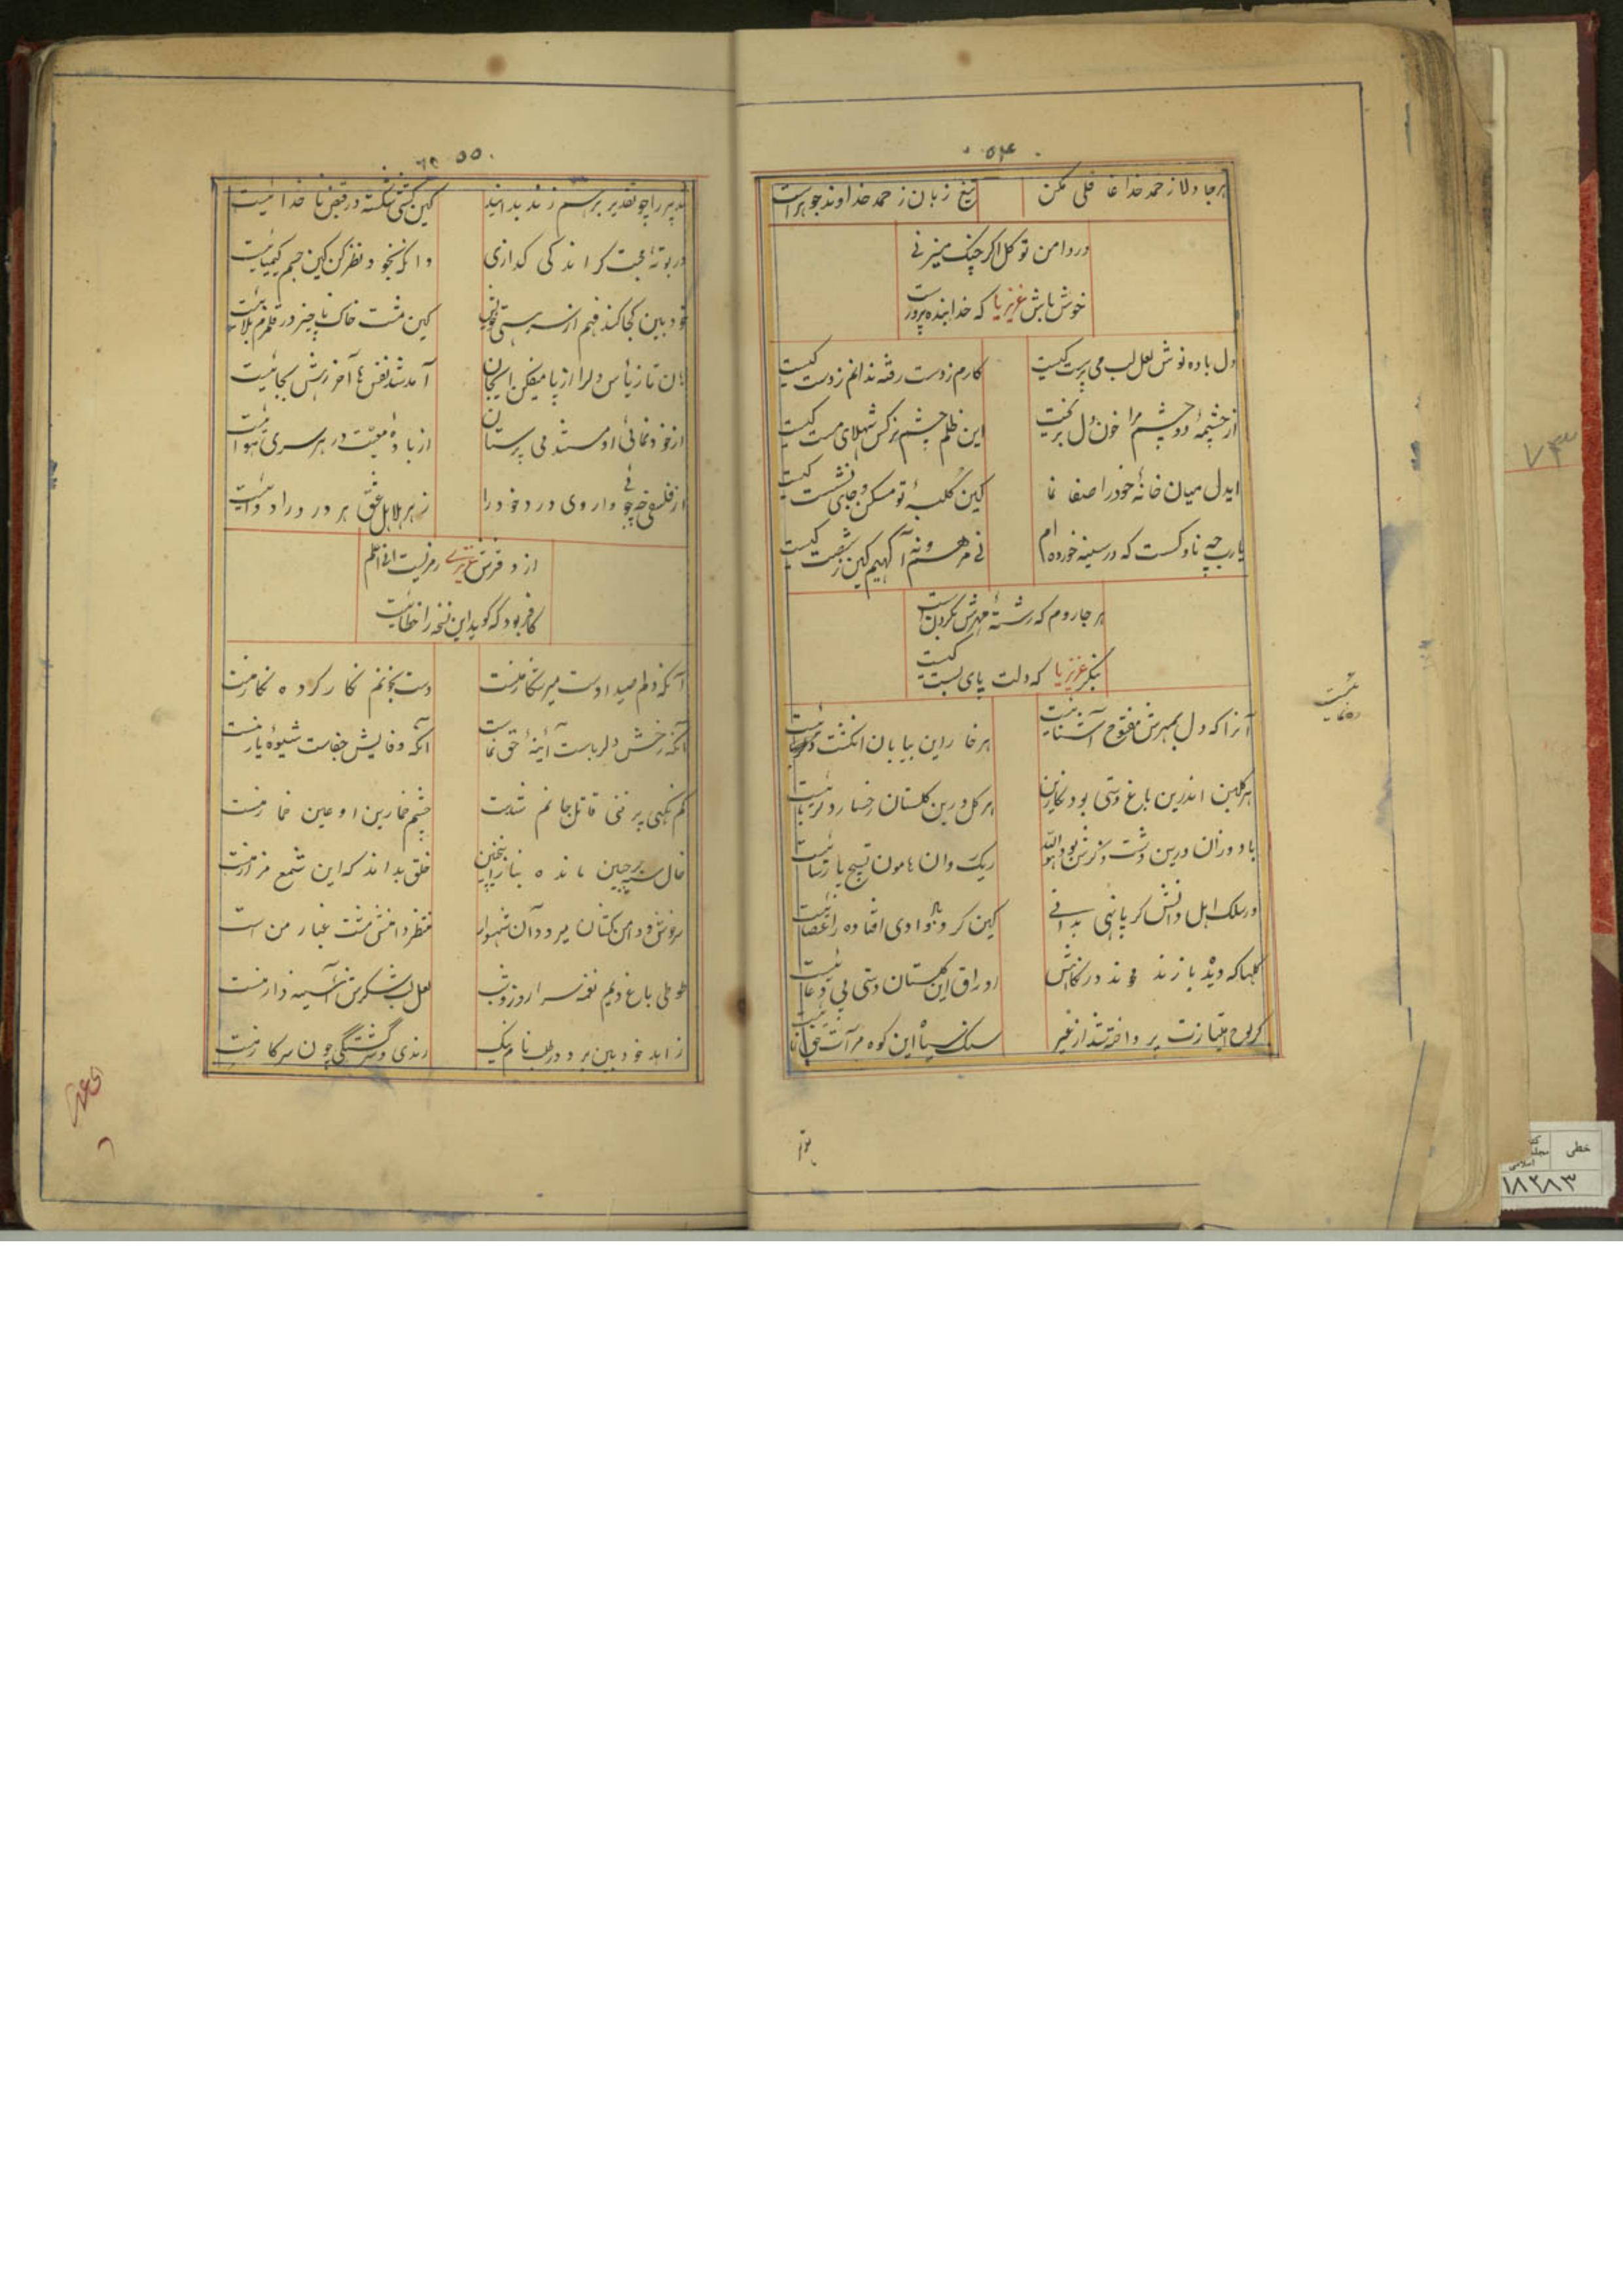 ۵۴
هرجا دلا ز حمد خدا غافلی مکن
تیغ زبان ز حمد خداوند جوهر است
در دامن توکل اگر چنگ میزنی
خوش باش عزیزیا که خدا بنده‌پرور است
دل باده نوش لعل لب می پرست کیست
کارم ز دست رفته ندانم ز دست کیست
از چشمهٔ دو چشم مرا خون دل بریخت
این ظلم چشم نرگس شهلای مست کیست
ایدل میان خانهٔ خود را صفا نما
کین کلبهٔ تو مسکن و جای نشست کیست
یارب چه ناوکست که در سینه خورده‌ام
نی مرهم و نه آگهیم کین ز شصت کیست
هر جا روم که رشتهٔ مهرش بگردن است
بنگر عزیزیا که دلت پای بست کیست
آنرا که دل بمهرش مفتوح آشنائیست
هر خار این بیابان انگشت
هر گلبن اندرین باغ دستی بود نگارین
هر گل درین گلستان رخسار دلربائیست
باد وزان درین دشت ذکرش بود هوالله
ریک روان هامون تسبیح پارسائیست
در سلک اهل دانش گر پا نهی بدانی
کین گرد باد وادی افتاده را عصائیست
گلها که دید
اوراق این گلستان دستی پی دعائیست
گر لوح امتیازت پرداخته شد از غیر
سنگ سیاه این کوه مرآت حق نمائیست
۵۵
تدبیر را چو تقدیر برهم زند بدانید
کین کشتی شکسته در قبض ناخدائیست
در بوتهٔ محبت گر اندکی گدازی
وانگه بخود نظر کن کین جسم کیمیائیست
خودبین کجا کند فهم از سر هستی خویش
کین مشت خاک ناچیز در قلزم بلائیست
هان تا ز یأس دلرا از پا میفکن ایجان
آمد شد نفس ها آخر رهش بجائیست
از خودنمائی او مستند می پرستان
از بادهٔ محبت در هر سری هوائیست
از فلسفی چه جوئی داروی درد خود را
زهر هلاهل عشق هر درد را دوائیست
از دفترش عزیزی رمزیست
کافر بود که گوید این نسخه را خطائیست
آنکه دلم صید اوست میر شکار منست
دست بخونم نگار کرده نگار منست
آنکه رخش دلرباست آینهٔ حق نماست
آنکه وفایش جفاست شیوهٔ یار منست
کم نگهی پر فنی قاتل جانم شدست
چشم خمارین او عین خمار منست
خال سیه بر جبین مانده بناز اینچنین
خلق بدانند که این شمع مزار منست
سروش و دامن کشان میرود آن شهسوار
منتظر دامنش مشت غبار من است
طوطی باغ دلم نغمه سرا روز و شب
لعل لب شکرش آینه دار منست
زاهد خودبین برو در طلب نام نیک
رندی و سرگشتگی چون سر کار منست
۷۳
خطی
۱۸۲۸۳